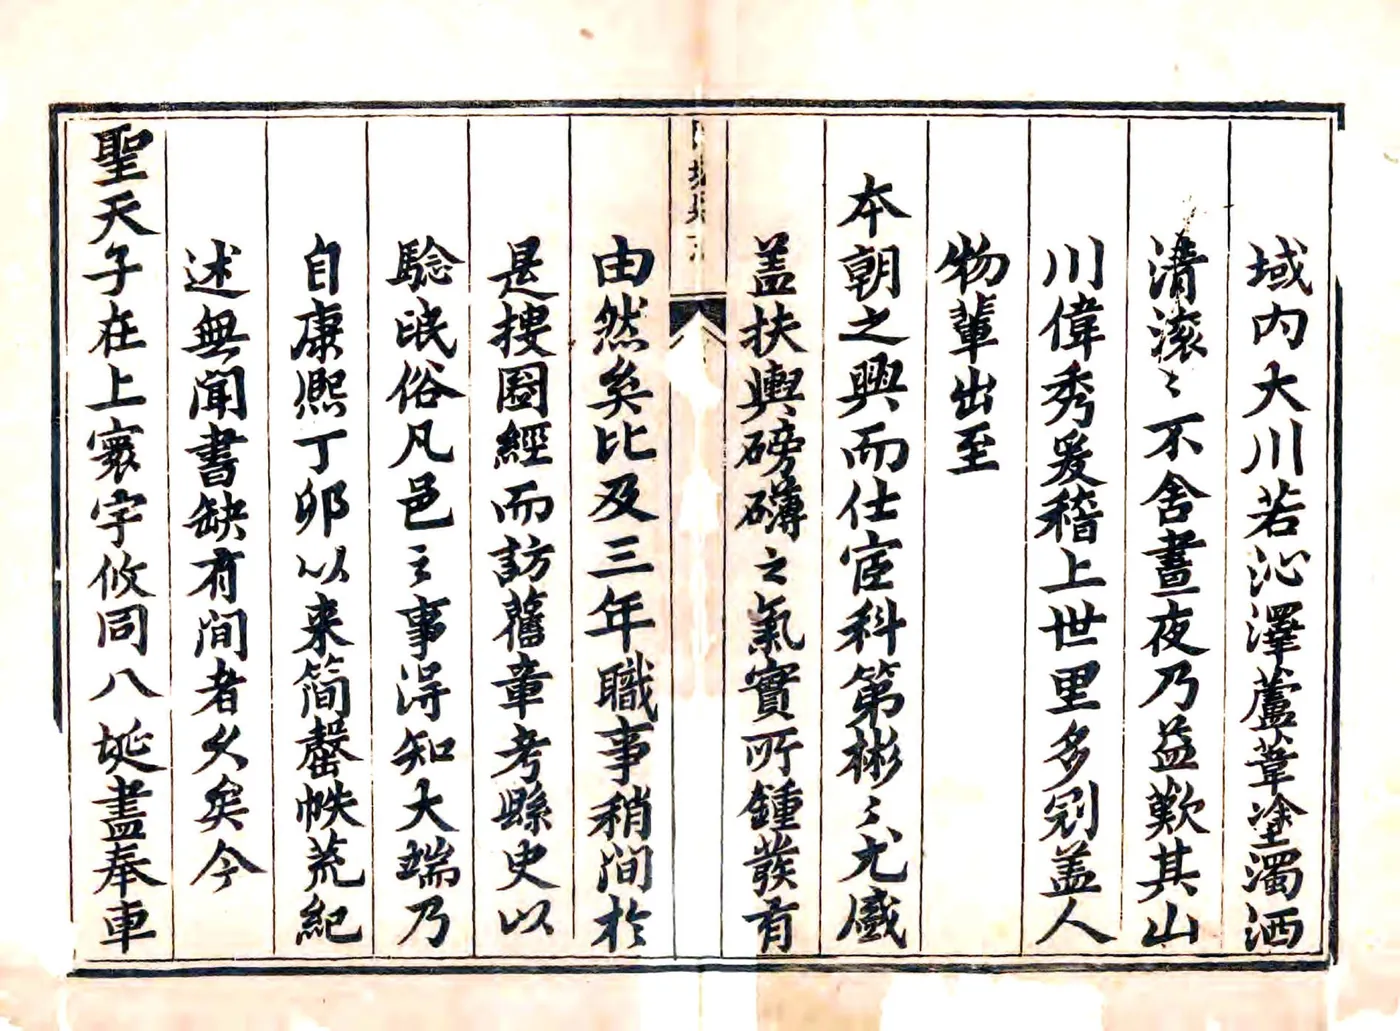 域内大川若沁澤蘆葦塗濁洒
清滚〻不舍晝夜乃益歎其山
川偉秀爰稽上世里多剜盖人
物輩出至
本朝之興而仕宦科第彬〻尤盛
盖扶輿磅礴之氣實所鍾發有
由然矣比及三年職事稍間於
是搜圖經而訪舊章考縣史以
驗氓俗凡邑之事淂知大端乃
自康熙丁卯以来簡罄帙荒紀
述無聞書缺有间者久矣今
聖天子在上寰宇攸同八埏盡奉車